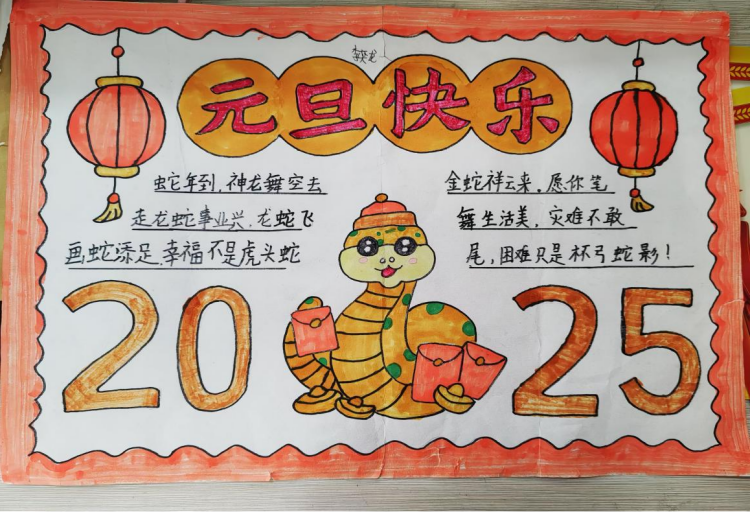 元旦快乐
蛇年到,神龙舞空去
金蛇祥云来,愿你笔
走龙蛇事业兴,龙蛇飞
舞生活美,灾难不敢
画蛇添足,幸福不是虎头蛇
尾,困难只是杯弓蛇影!
2025